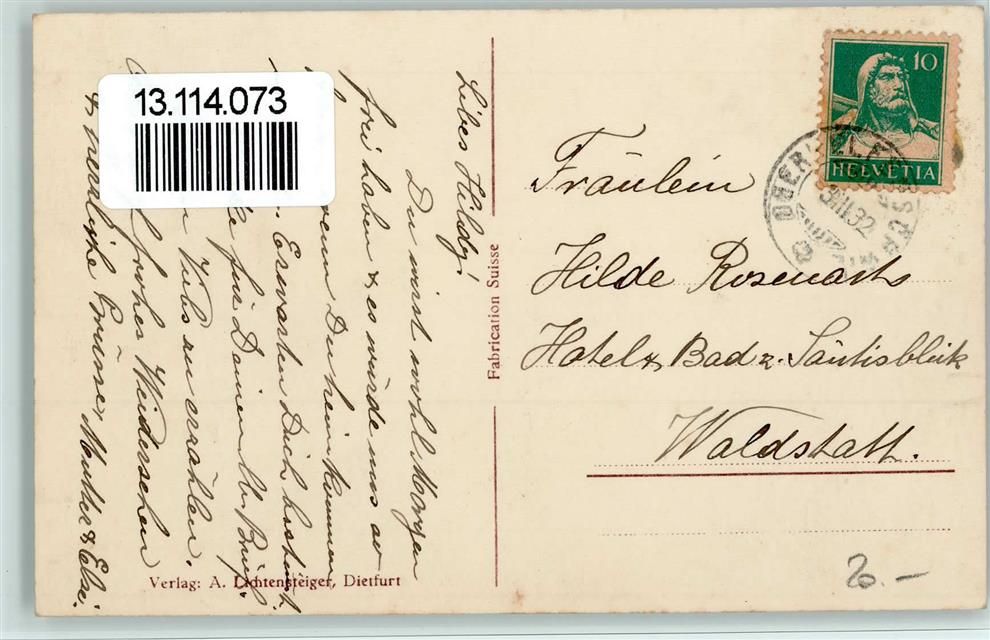 13.114.073
Liebes Hildy!
Du wirst wohl Morgen
frei haben & es würde uns so
wenn Du heim kommen
Erwarten Dich bestimmt.
für Deinen lb. Brief
zu erzählen.
frohes Wiedersehen
& herzliche Grüsse, Mutter & Elsi.
Verlag: A. Lichtensteiger, Dietfurt
Fabrication Suisse
10
HELVETIA
32
Fräulein
Hilde
Hotel z. Bad z. Säntisblick
Waldstatt.